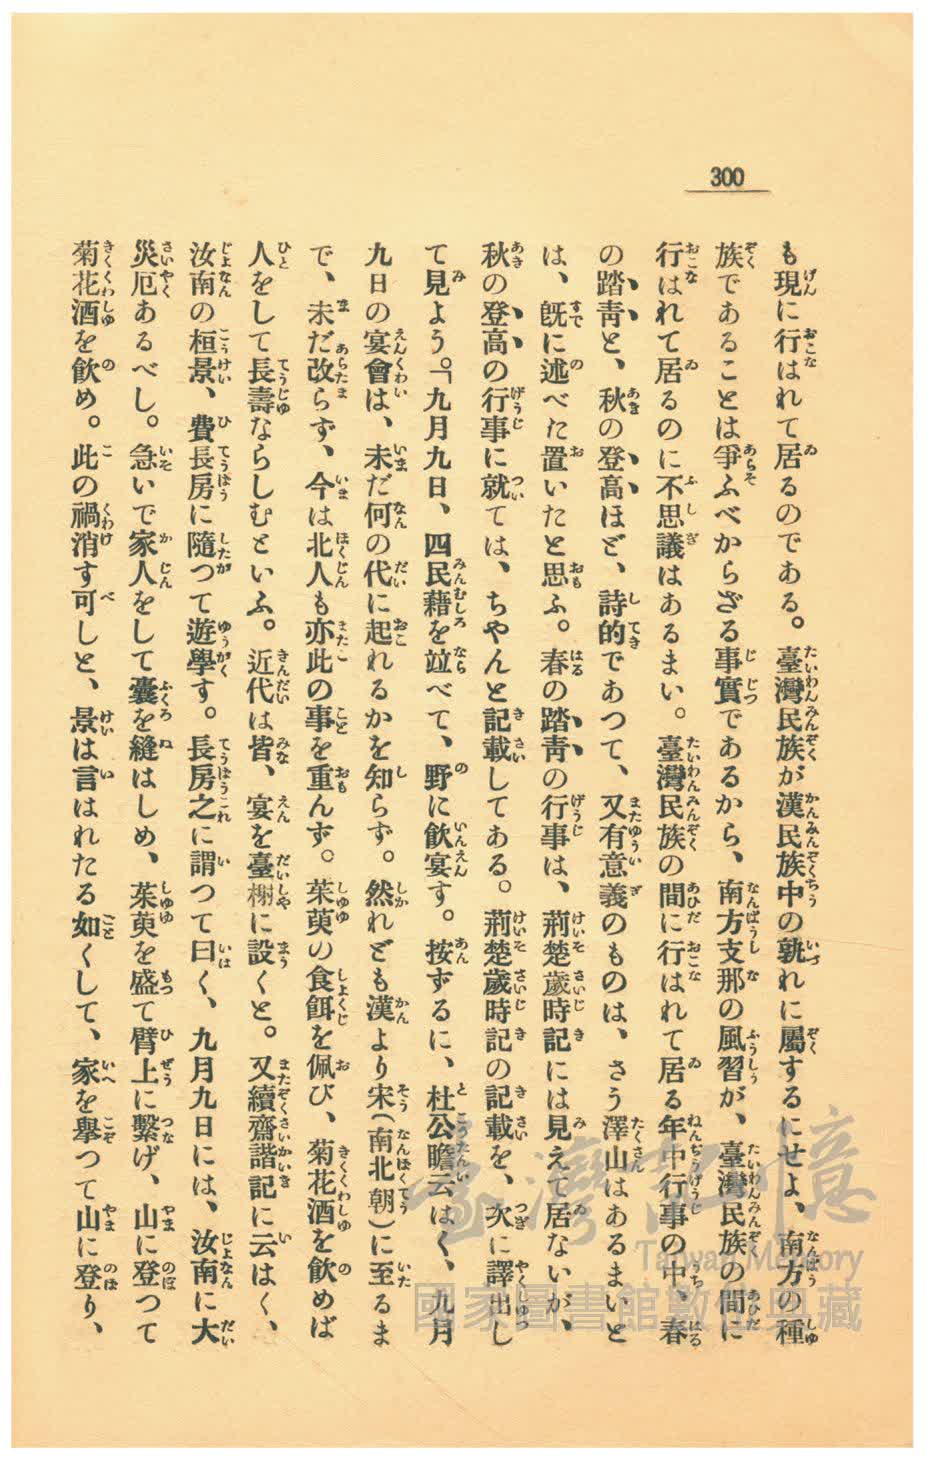 300
も現に行はれて居るのである。臺灣民族が漢民族中の孰れに屬するにせよ、南方の種
族であることは爭ふべからざる事實であるから、南方支那の風習が、臺灣民族の間に
行はれて居るのに不思議はあるまい。臺灣民族の間に行はれて居る年中行事の中、春
の踏靑と、秋の登高ほど、詩的であつて、又有意義のものは、さう澤山はあるまいと
は、旣に述べた置いたと思ふ。春の踏靑の行事は、荊楚歲時記には見えて居ないが、
秋の登高の行事に就ては、ちやんと記載してある。荊楚歲時記の記載を、次に譯出し
て見よう。「九月九日、四民藉を竝べて、野に飮宴す。按ずるに、杜公瞻云はく、九月
九日の宴會は、未だ何の代に起れるかを知らず。然れども漢より宋(南北朝)に至るま
で、未だ改らず、今は北人も亦此の事を重んず。茱萸の食餌を佩び、菊花酒を飮めば
人をして長壽ならしむといふ。近代は皆、宴を臺榭に設くと。又續齋諧記に云はく、
汝南の桓景、費長房に隨つて遊學す。長房之に謂つて曰く、九月九日には、汝南に大
災厄あるべし。急いで家人をして囊を縫はしめ、茱萸を盛て臂上に繫げ、山に登つて
菊花酒を飮め。此の禍消す可しと、景は言はれたる如くして、家を擧つて山に登り、
臺灣記憶
Taiwan Memory
國家圖書館數位典藏